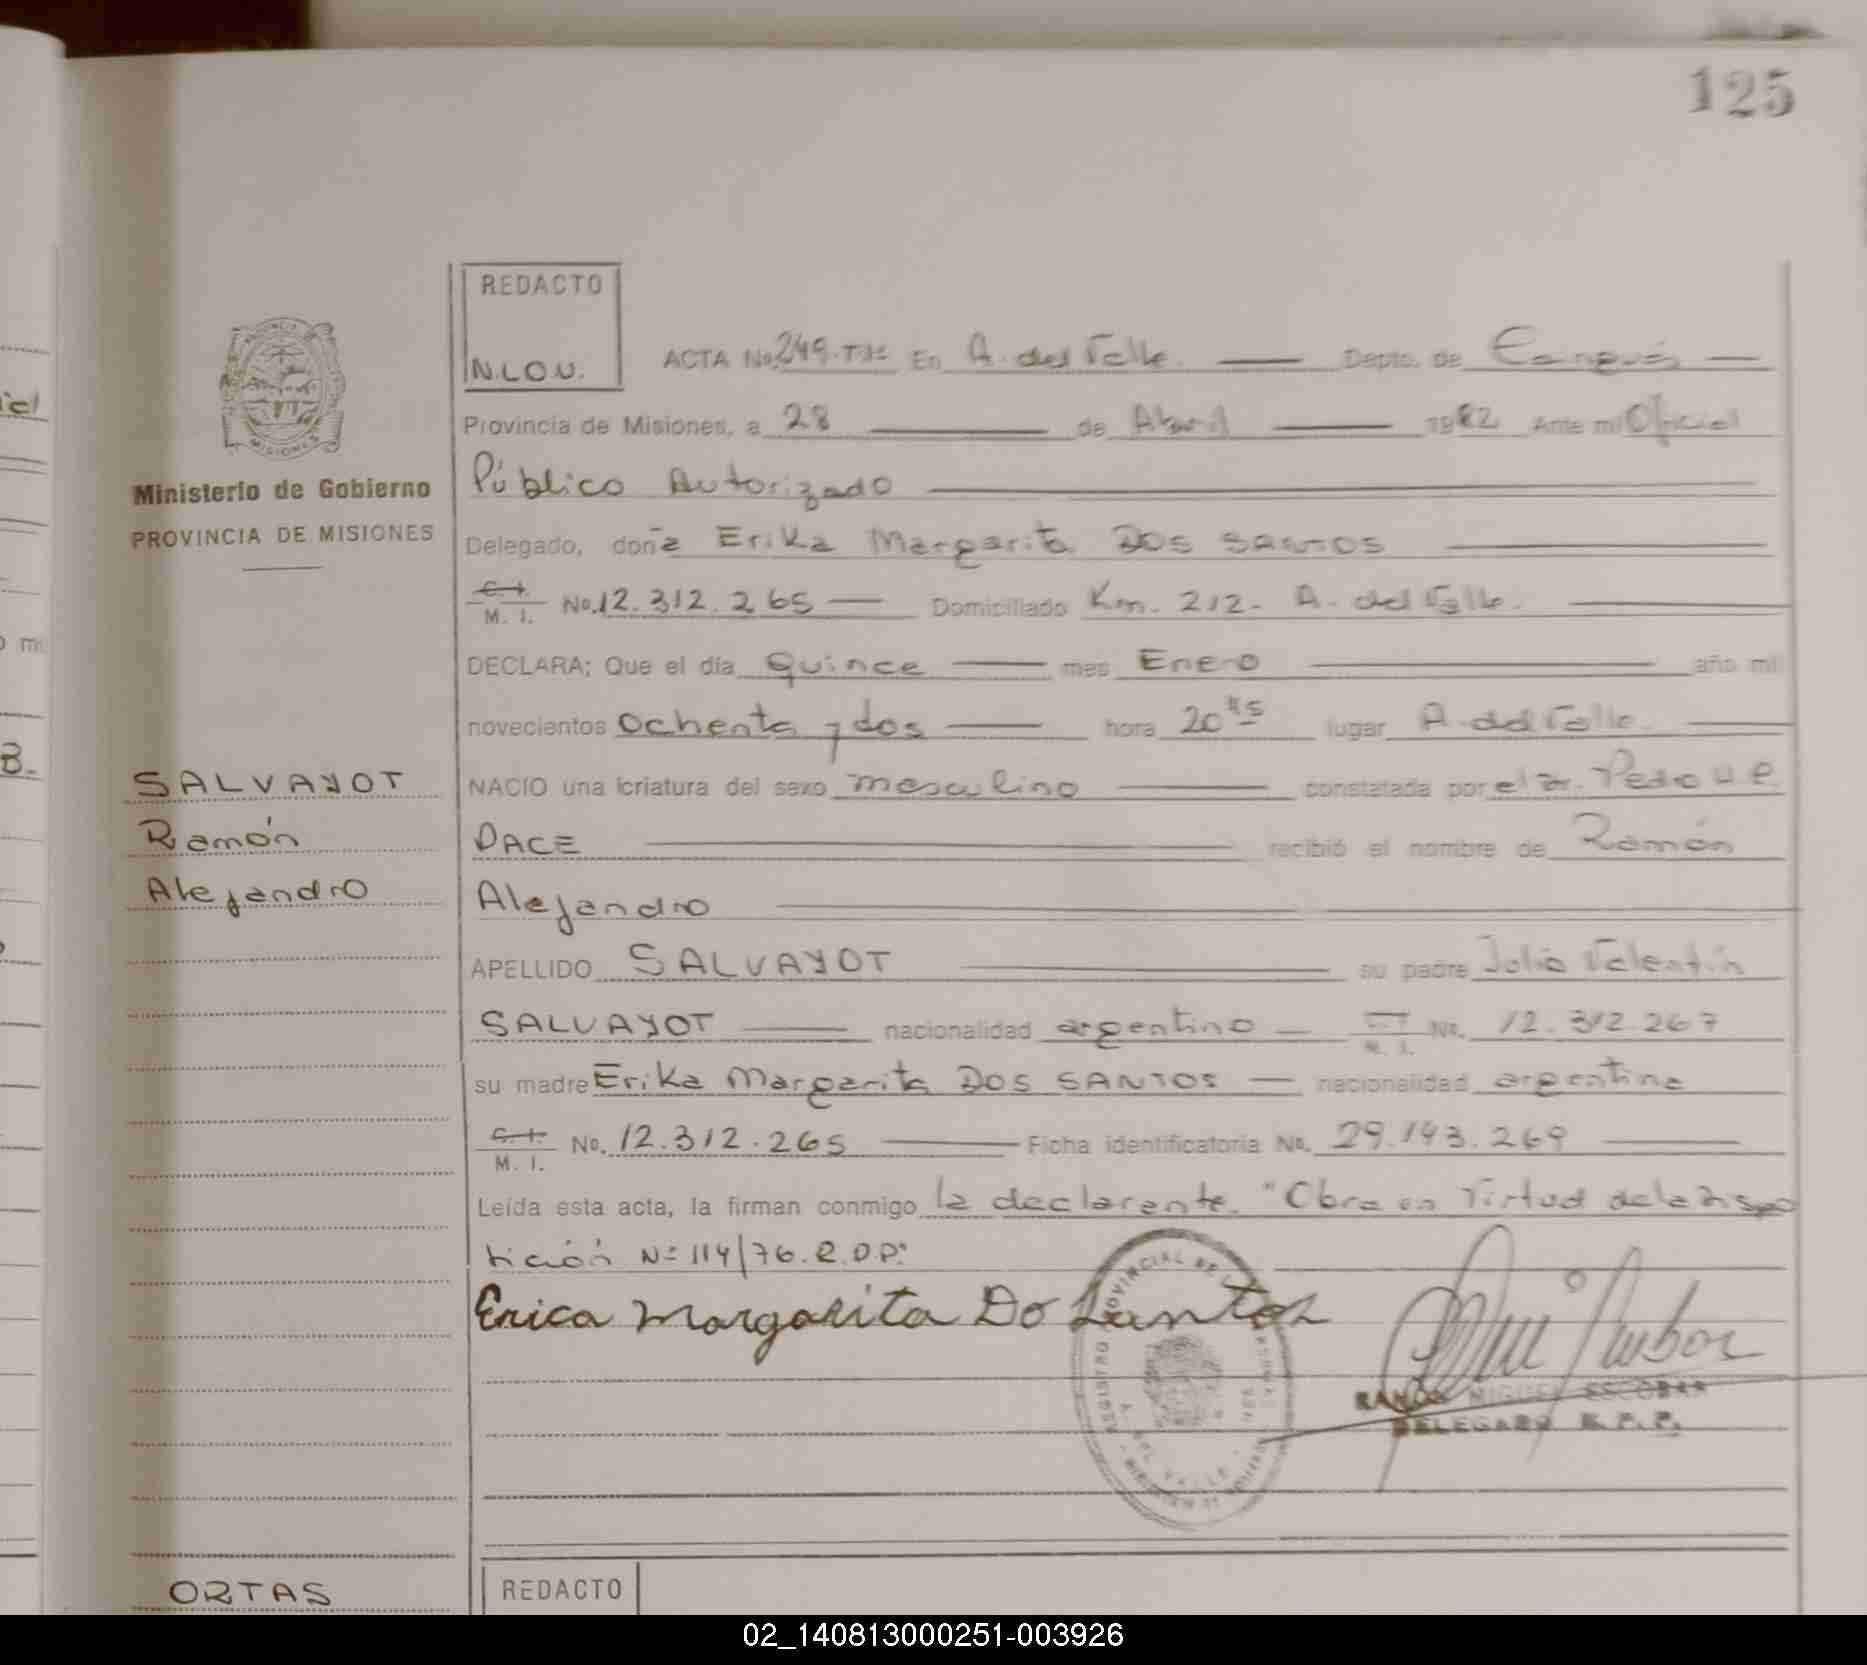 125
REDACTO
N.L.O.V.
ACTA No. 249. T.1º En A. del Valle. Depto. de Cainguás
Provincia de Misiones, a 28 de Abril 1982 Ante mi Oficial
Público Autorizado
Ministerio de Gobierno
PROVINCIA DE MISIONES
Delegado, doña Erika Margarita DOS SANTOS
C. I.
M. I. No. 12.312.265 Domiciliado Km. 212- A. del Valle.
DECLARA; Que el día quince mes Enero año mil
novecientos ochenta y dos hora 20 hs lugar A. del Valle.
SALVAYOT
Ramón
Alejandro
NACIO una criatura del sexo masculino constatada por el Dr. Pedro
PACE recibió el nombre de Ramón
Alejandro
APELLIDO SALVAYOT su padre Julio Valentín
SALVAYOT nacionalidad argentino C. I. M. I. No. 12.312.267
su madre Erika Margarita DOS SANTOS nacionalidad argentina
C. I.
M. I. No. 12.312.265 Ficha identificatoria No. 29.143.269
Leída esta acta, la firman conmigo la declarante. "Obra en virtud de la Dispo
sición Nº 114/76. R.D.P."
Erica Margarita Do Santos
RAMON MIGUEL ESCOBAR
DELEGADO R.P.P.
ORTAS
REDACTO
02_140813000251-003926